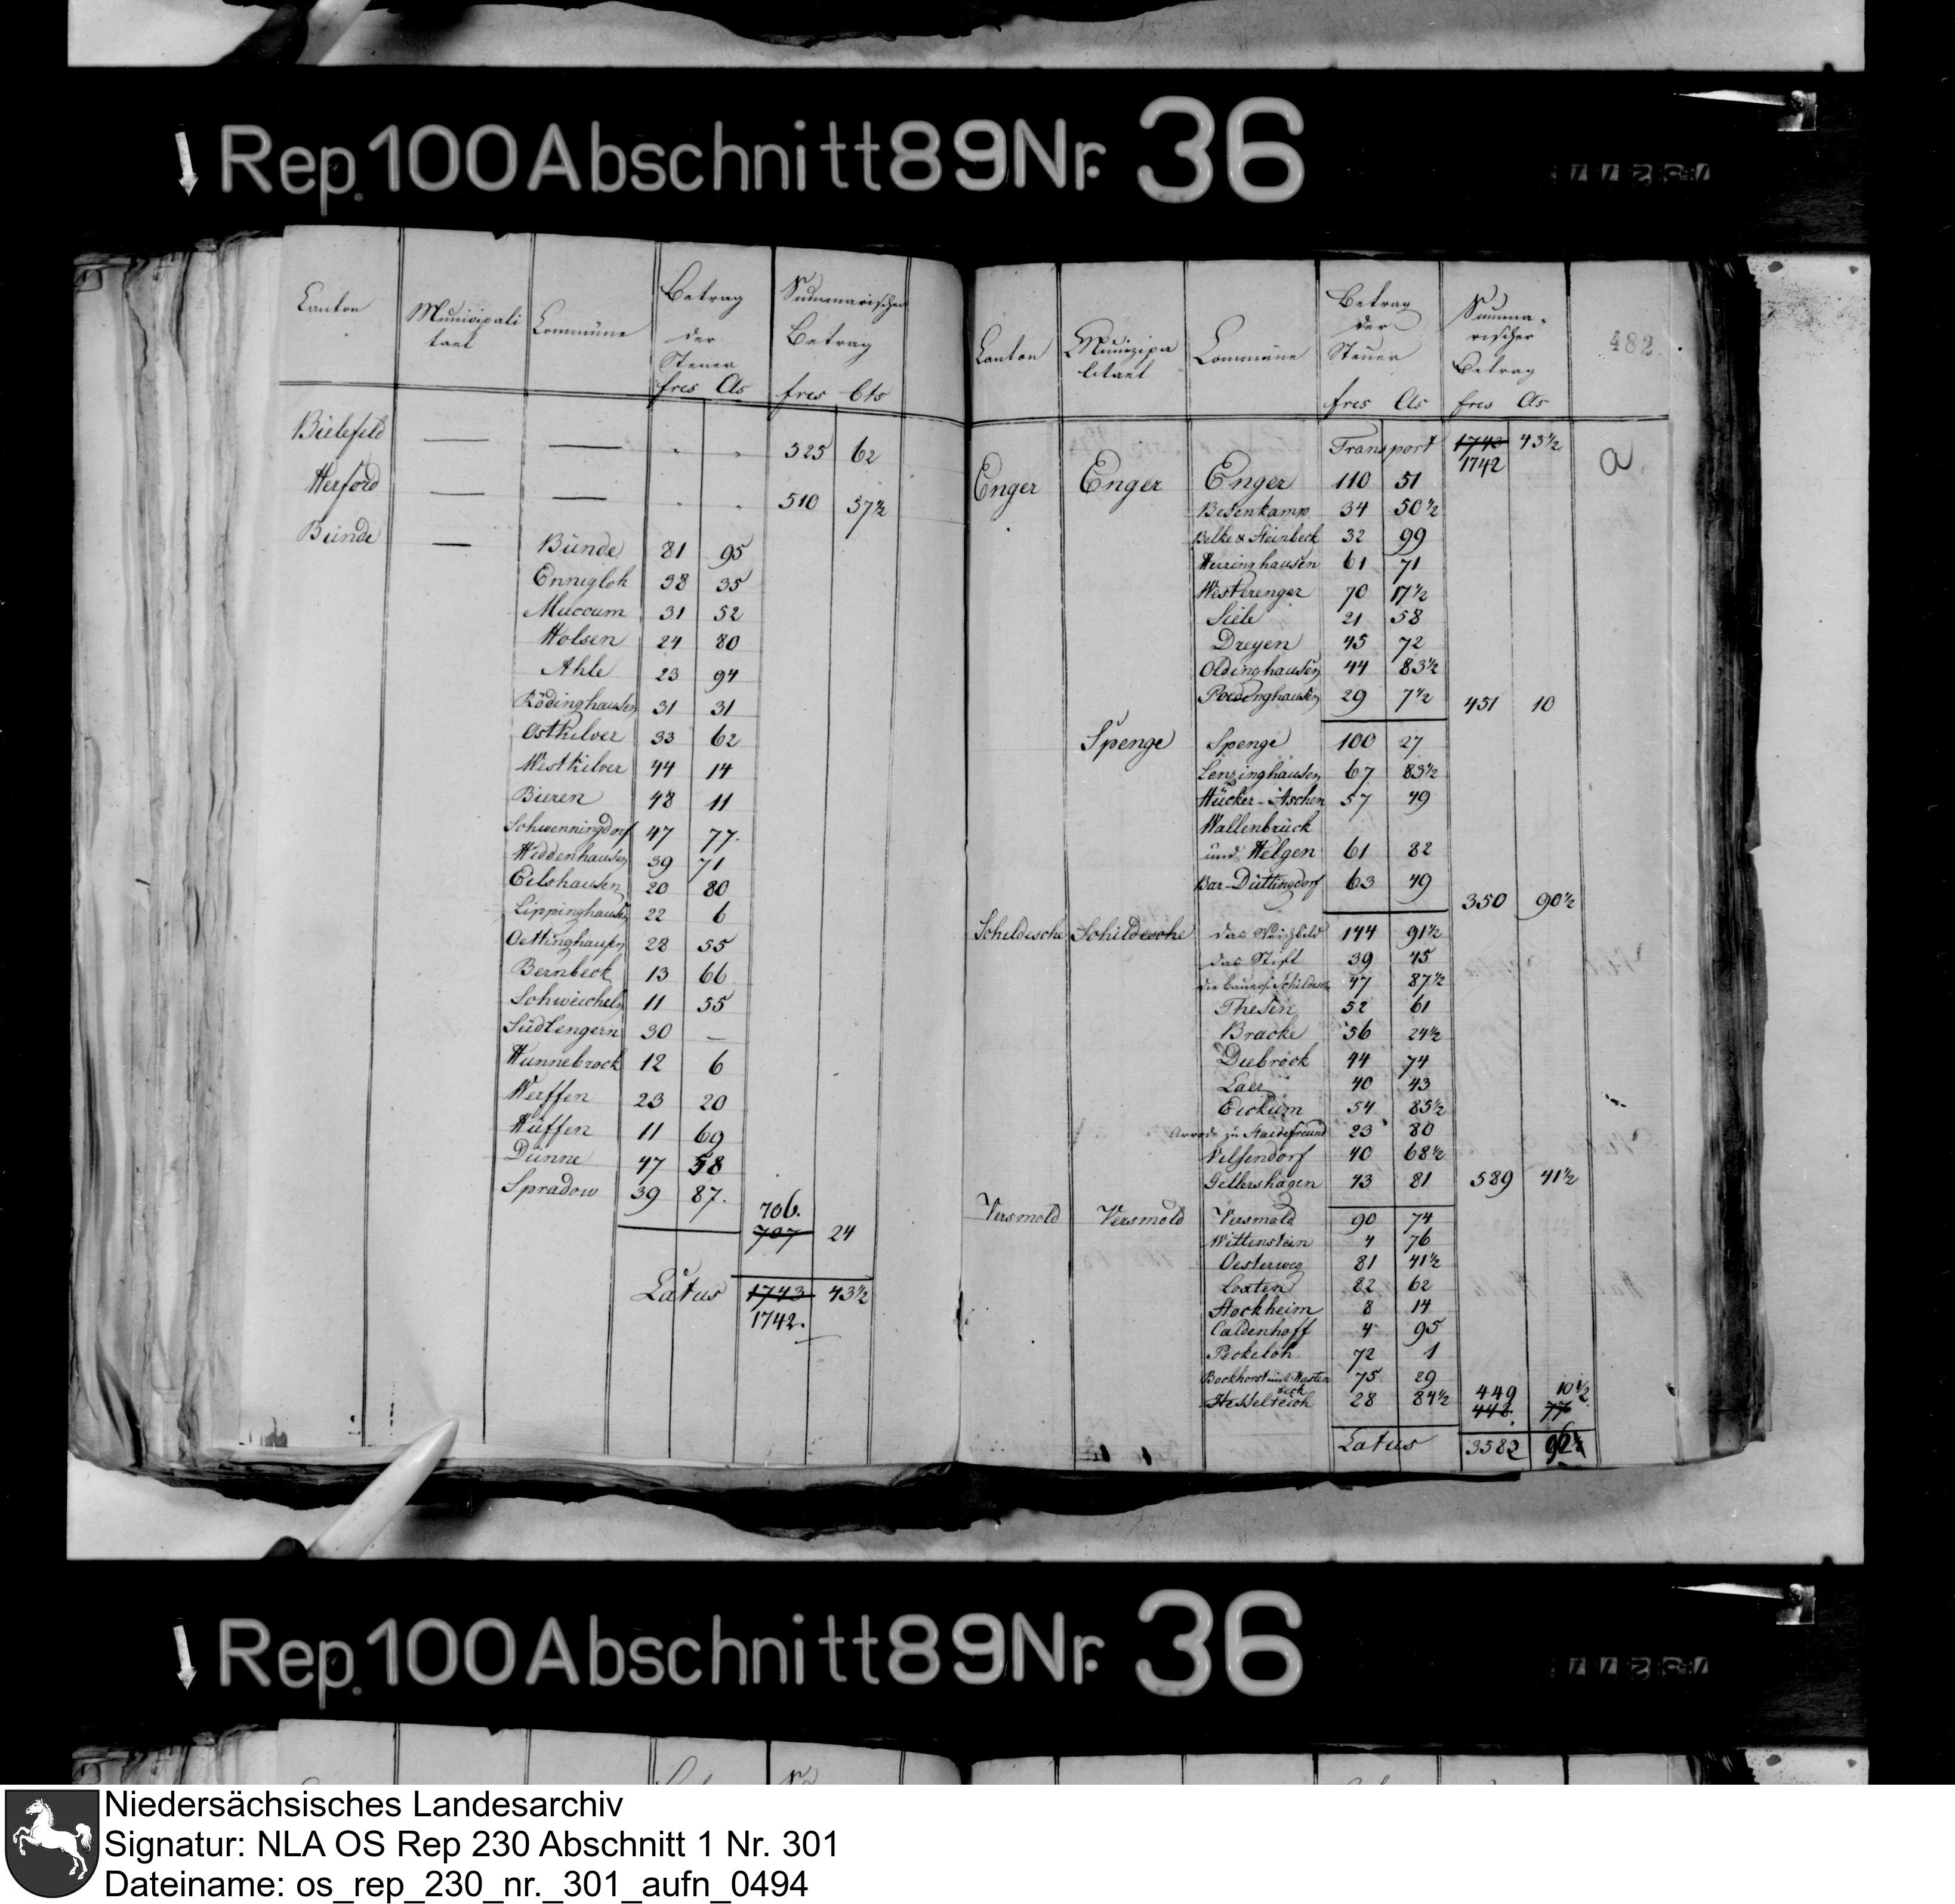 Rep. 100 Abschnitt 89 Nr. 36
Canton Municipali taet Commüne Betrag der Steuer Summarischer Betrag
frcs Cts frcs Cts
Bielefeld — — 525 62
Herford — — 510 57½
Bünde — Bünde 81 95
Ennigloh 38 35
Muccum 31 52
Holsen 24 80
Ahle 23 94
Rödinghausen 31 31
Ostkilver 33 62
Westkilver 44 14
Bieren 48 11
Schwenningdorf 47 77.
Hiddenhausen 39 71
Eilshausen 20 80
Lippinghausen 22 6
Oettinghausen 28 55
Bernbeck 13 66
Schweicheln 11 55
Südlengern 30 —
Hunnebrock 12 6
Werffen 23 20
Hüffen 11 69
Dünne 47 58
Spradow 39 87.
706.
707 24
Latus 1743 43½
1742.
Canton Munizipa litaet Commüne Betrag der Steuer Summa-rischer Betrag
482.
frcs Cts frcs Cts
Transport 1743 43½
1742
a
Enger Enger Enger 110 51
Besenkamp 34 50½
Belke & Steinbeck 32 99
Herringhausen 61 71
Westerenger 70 17½
Siele 21 58
Dreyen 45 72
Oldinghausen 44 83½
Poedinghausen 29 7½ 451 10
Spenge Spenge 100 27
Lenzinghausen 67 83½
Hücker-Aschen 57 49
Wallenbrück
und Helgen 61 82
Bar-Düttingdorf 63 49
350 90½
Schildesche Schildesche das Weichbild 144 91½
das Stift 39 45
die Bauersch Schildesche 47 87½
Thesen 52 61
Bracke 56 24½
Diebrock 44 74
Laer 40 43
Eickum 54 85½
Arrode zu Haidefreund 23 80
Vilsendorf 40 68½
Gellershagen 43 81 589 41½
Versmold Versmold Versmold 90 74
Wittenstein 4 76
Oesterweg 81 41½
Loxten 82 62
Stockheim 8 14
Caldenhoff 4 95
Peckeloh 72 1
Bockhorst 75 29
Hesselteich 28 84½ 449 10½
448. 77
Latus 3582 92½
Rep. 100 Abschnitt 89 Nr. 36
Niedersächsisches Landesarchiv
Signatur: NLA OS Rep 230 Abschnitt 1 Nr. 301
Dateiname: os_rep_230_nr._301_aufn_0494